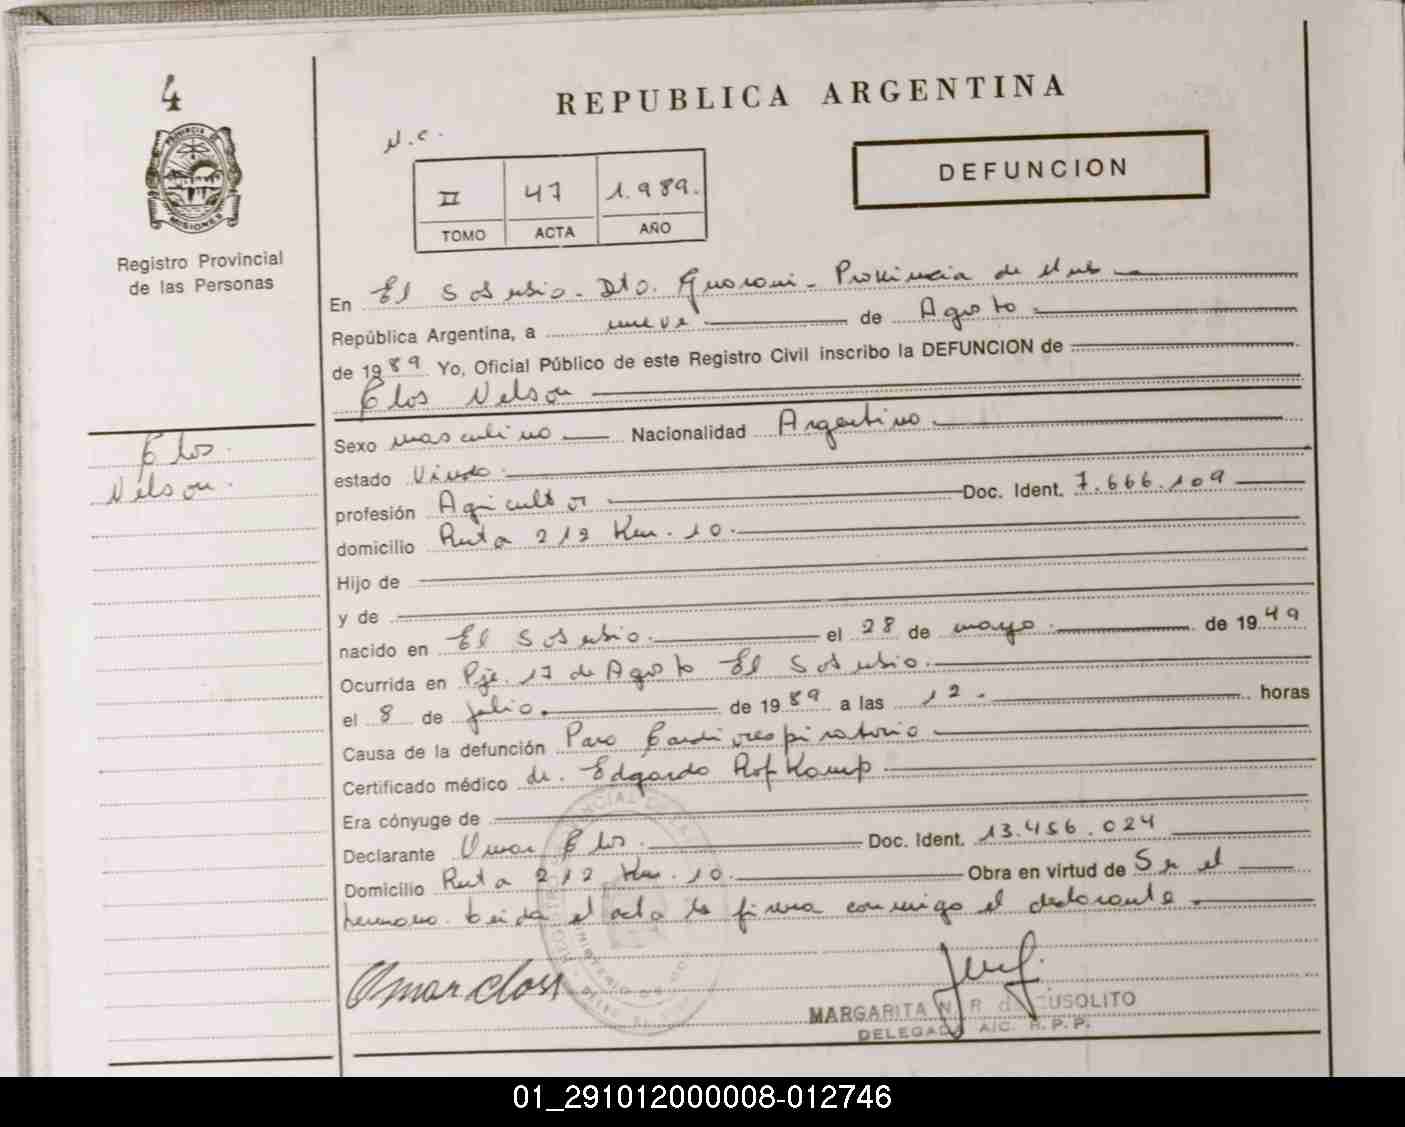 4
PROVINCIA DE
MISIONES
Registro Provincial
de las Personas
REPUBLICA ARGENTINA
N.C.
DEFUNCION
II 47 1.989.
TOMO ACTA AÑO
En El Soberbio - Dto. Guarani - Provincia de Mnes
República Argentina, a nueve de Agosto
de 1989 Yo, Oficial Público de este Registro Civil inscribo la DEFUNCION de
Clos Nelson
Clos.
Nelson.
Sexo masculino Nacionalidad Argentino
estado Viudo
profesión Agricultor Doc. Ident. 7.666.109
domicilio Ruta 212 Km. 10.
Hijo de
y de
nacido en El Soberbio. el 28 de mayo. de 1949
Ocurrida en Pje. 17 de Agosto El Soberbio.
el 8 de julio. de 1989 a las 12. horas
Causa de la defunción Paro Cardiorespiratorio
Certificado médico dr. Edgardo
Era cónyuge de
Declarante Omar Clos. Doc. Ident. 13.456.024
Domicilio Ruta 212 Km. 10. Obra en virtud de Ser el
hermano. Leida el acta la firma conmigo el declarante.
Omar closs
MARGARITA N. R. de CUSOLITO
DELEGADA A/C. R.P.P.
01_291012000008-012746